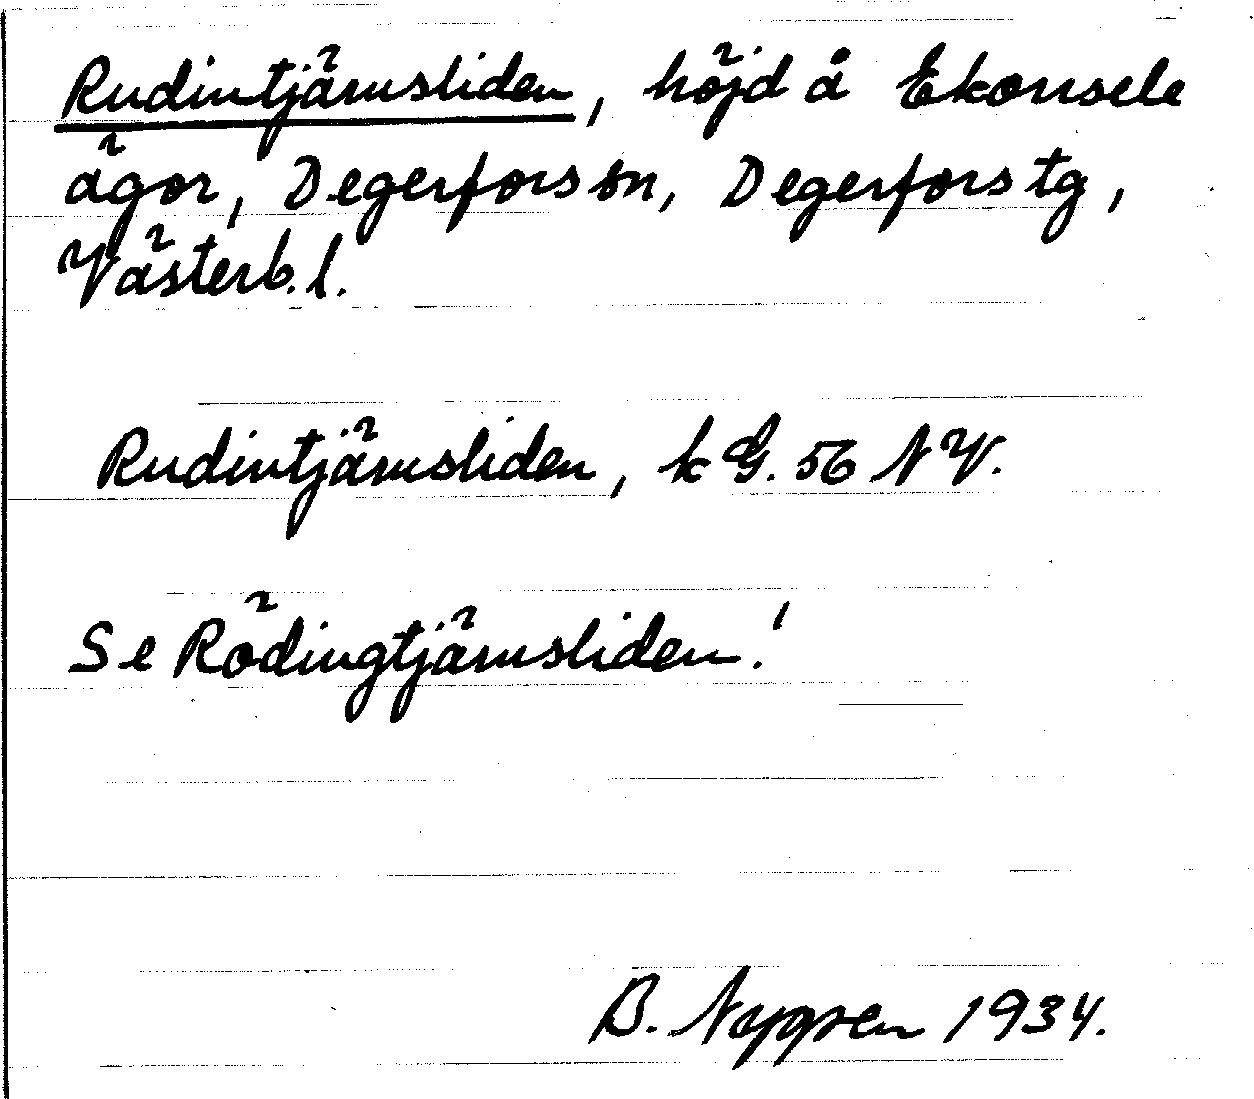 Rudintjärnsliden, höjd å Ekorrsele
ägor, Degerfors sn, Degerfors tg,
Västerb. l.
Rudintjärnsliden, k G. 56 NV.
Se Rödingtjärnsliden!
B. Nygren 1934.